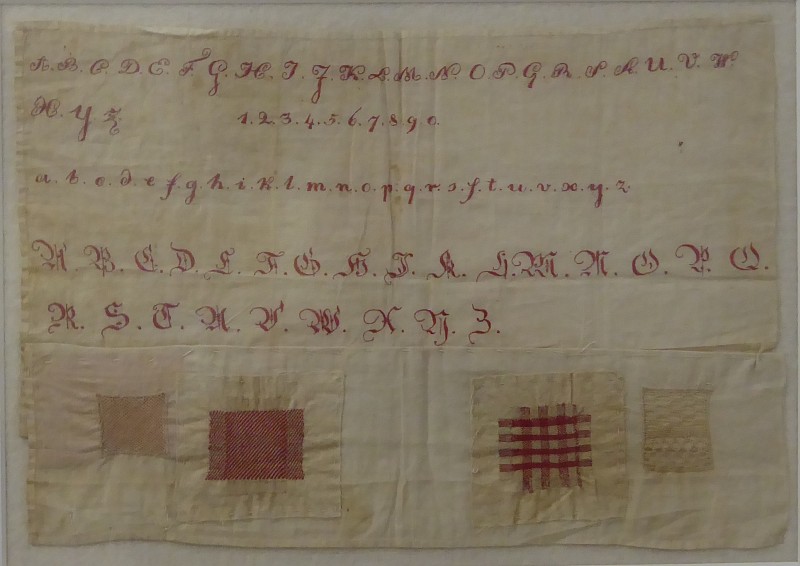 A. B. C. D. E. F. G. H. I. J. K. L. M. N. O. P. Q. R. S. T. U. V. W.
X. Y Z.
1. 2. 3. 4. 5. 6. 7. 8 9 0.
a. b. c. d. e f. g. h. i. k. l. m. n. o. p. q. r. s. f. t. u. v. x. y. z.
A. B. C. D. E. F. G. H. I. K. L. M. N. O. P. Q.
R. S. T. U. V. W. X. Y. Z.